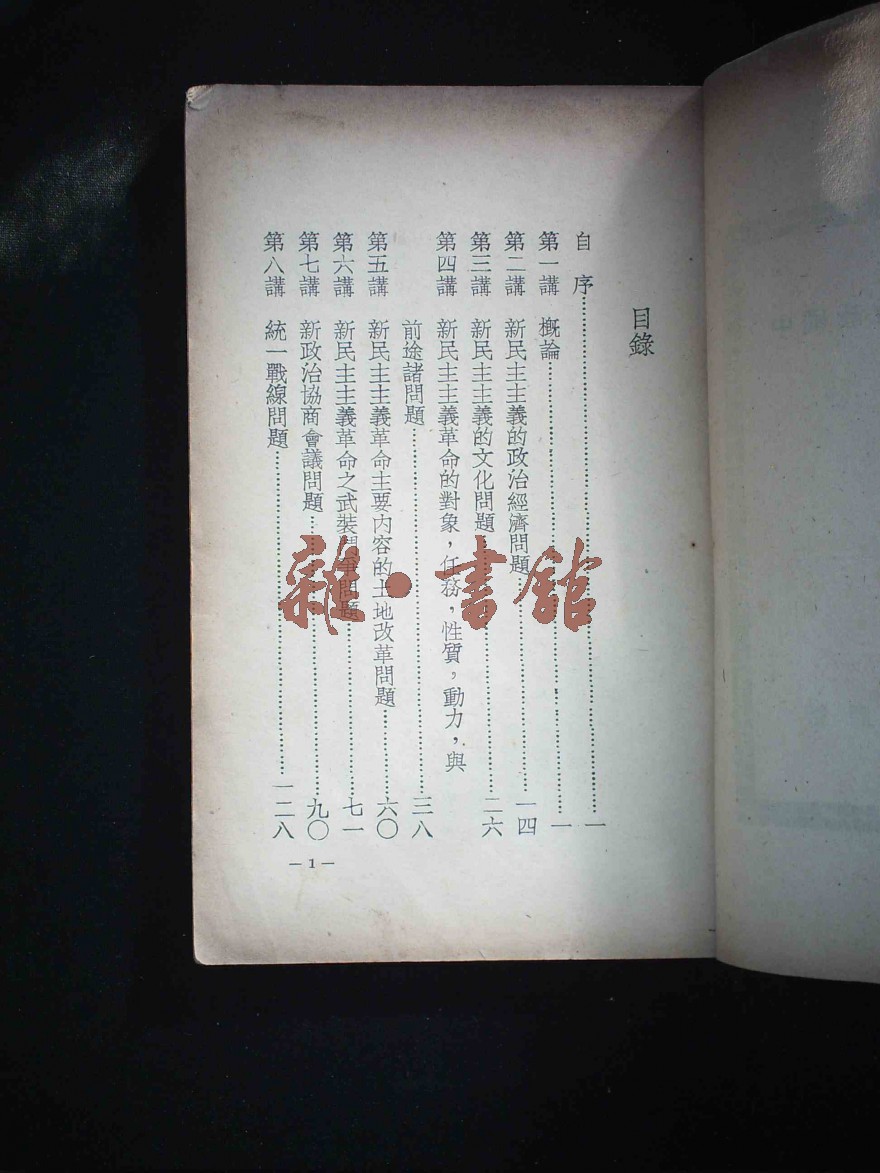 目錄
自 序……一
第一講 概論……一
第二講 新民主主義的政治經濟問題……一四
第三講 新民主主義的文化問題……二六
第四講 新民主主義革命的對象，任務，性質，動力，與
前途諸問題……三八
第五講 新民主主義革命主要內容的土地改革問題……六〇
第六講 新民主主義革命之武裝鬥爭問題……七一
第七講 新政治協商會議問題……九〇
第八講 統一戰線問題……一二八
—1—
雜·書館